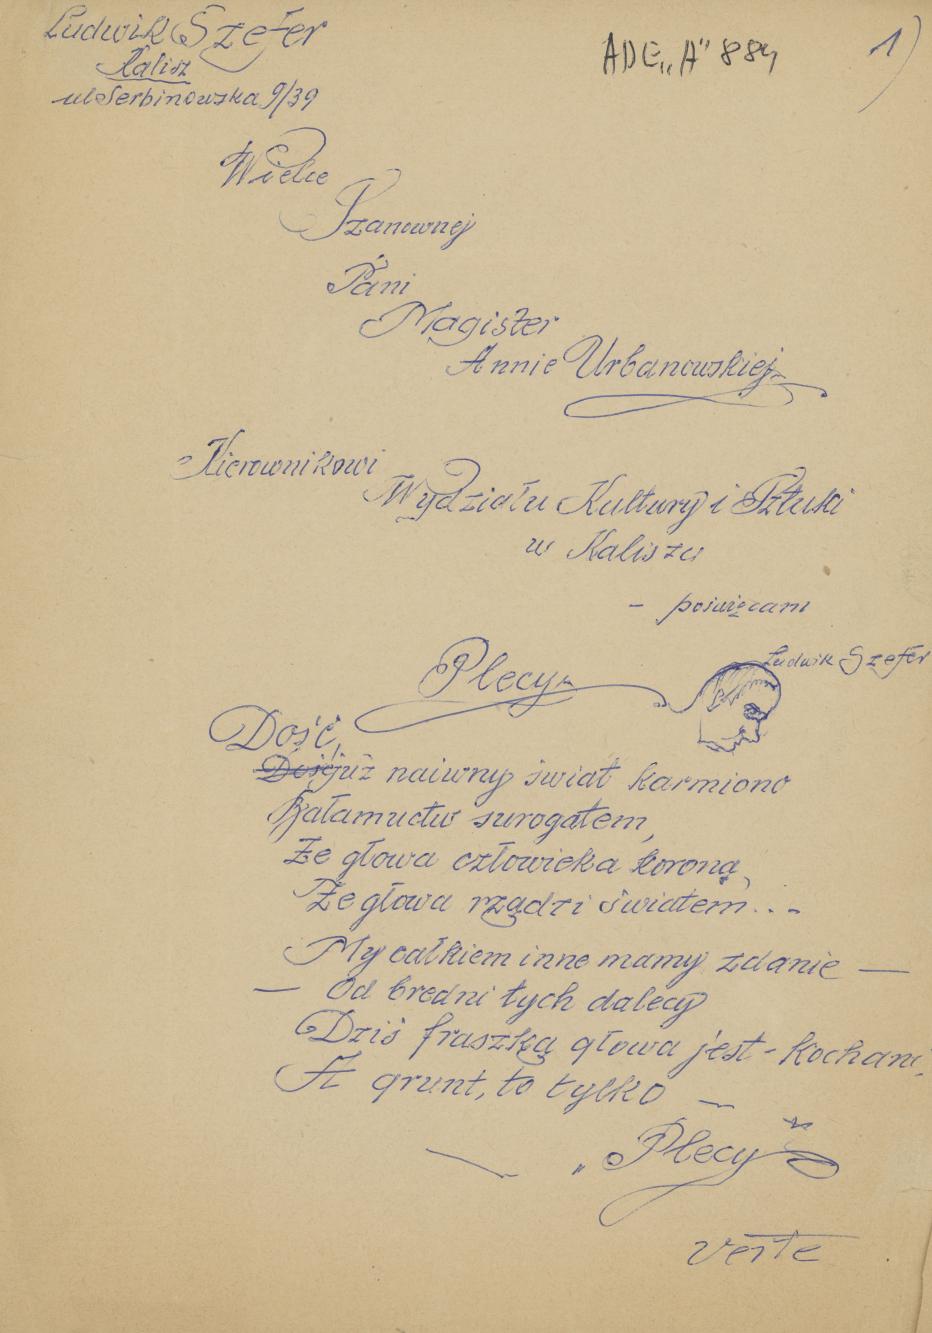 Ludwik Szefer
Kalisz
ul Serbinowska 9/39
ADE „A” 884
1)
Wielce
Szanownej
Pani
Magister
Annie Urbanowskiej
Kierownikowi
Wydziału Kultury i Sztuki
w Kaliszu
- poświęcam
Ludwik Szefer
Plecy
Dość,
Dość już naiwny świat karmiono
Bałamuctw surogatem,
Że głowa człowieka koroną,
Że głowa rządzi światem...
My całkiem inne mamy zdanie —
— Od bredni tych dalecy
Dziś fraszką głowa jest - kochani,
A grunt, to tylko —
— „Plecy”
verte